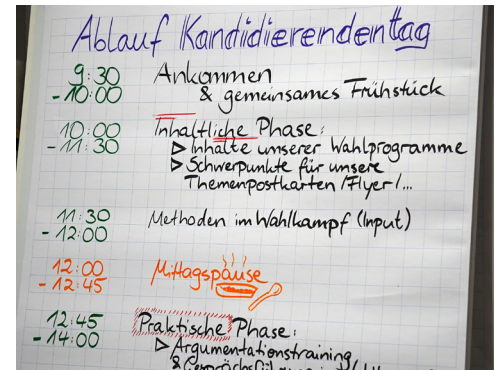 Ablauf Kandidierendentag
9:30 Ankommen
- 10:00 & gemeinsames Frühstück
10:00 Inhaltliche Phase:
- 11:30 ▷ Inhalte unserer Wahlprogramme
▷ Schwerpunkte für unsere
Themenpostkarten/Flyer/...
11:30 Methoden im Wahlkampf (Input)
- 12:00
12:00 Mittagspause
- 12:45
12:45 Praktische Phase:
- 14:00 ▷ Argumentationstraining